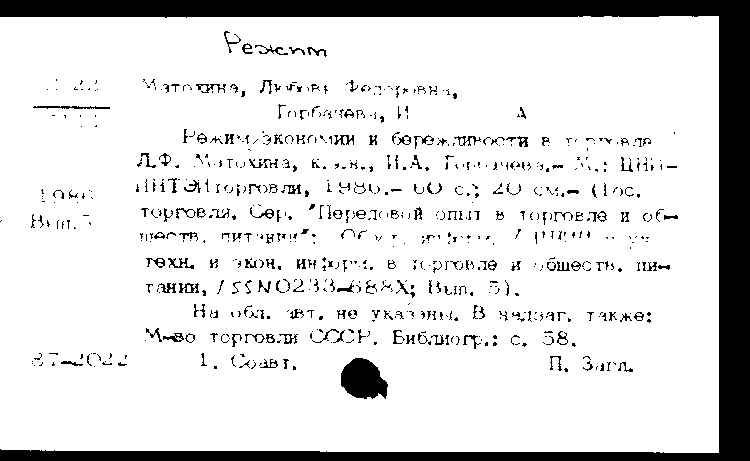 Режим
Матохина, Любовь Федоровна,
Горбачева, И А
Режим экономии и бережливости в торговле
Л.Ф. Матохина, к.э.н., И.А. Горбачева.- М.: ЦНИ-
ИНТЭИторговли, 1986.- 60 с.; 20 см.- (Гос.
1986
торговля. Сер. "Передовой опыт в торговле и об-
Вып.5
ществ. питании": информ. /
техн. и экон. информ. в торговле и обществ. пи-
тании, ISSN0233-688X; Вып. 5).
На обл. авт. не указаны. В надзаг. также:
М-во торговли СССР. Библиогр.: с. 58.
87-2022 1. Соавт. П. Загл.